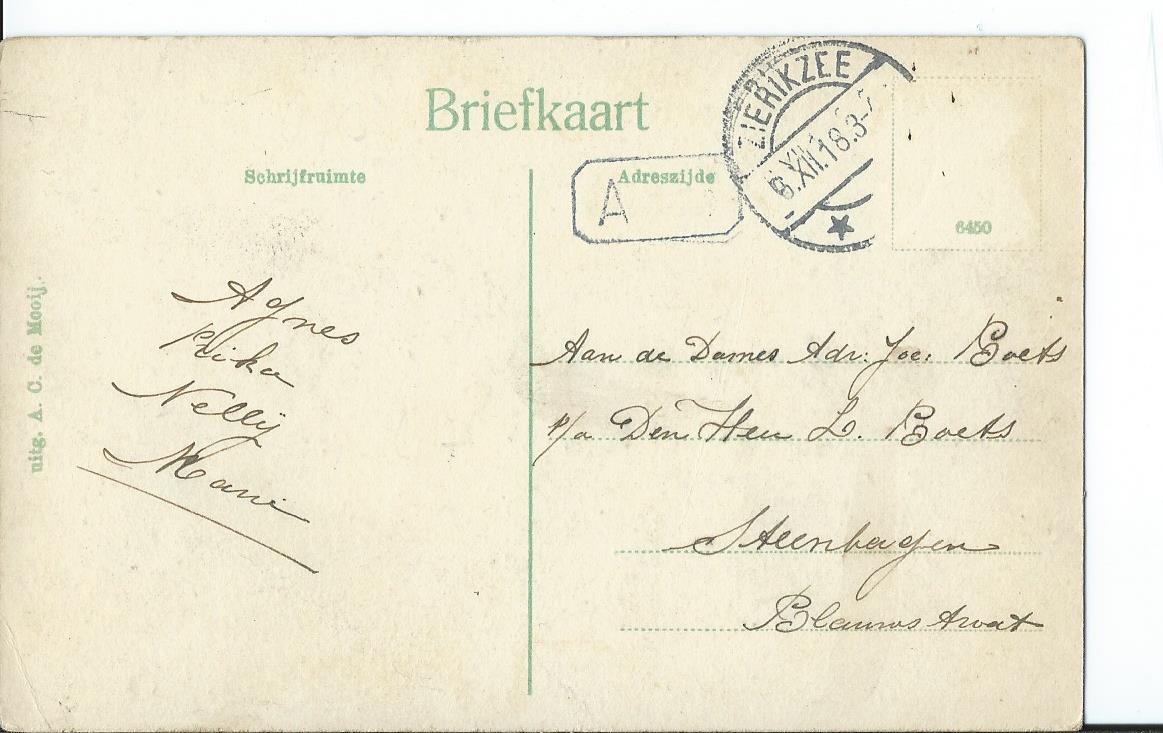 Briefkaart
ZIERIKZEE
6.XII.18.3-
Schrijfruimte
Adreszijde
A
6450
uitg. A. C. de Mooij.
Agnes
Rika
Nellÿ
Marie
Aan de Dames Adr: Joe: Boets
p/a Den Heer L. Boets
Steenbergen
Blauwstraat